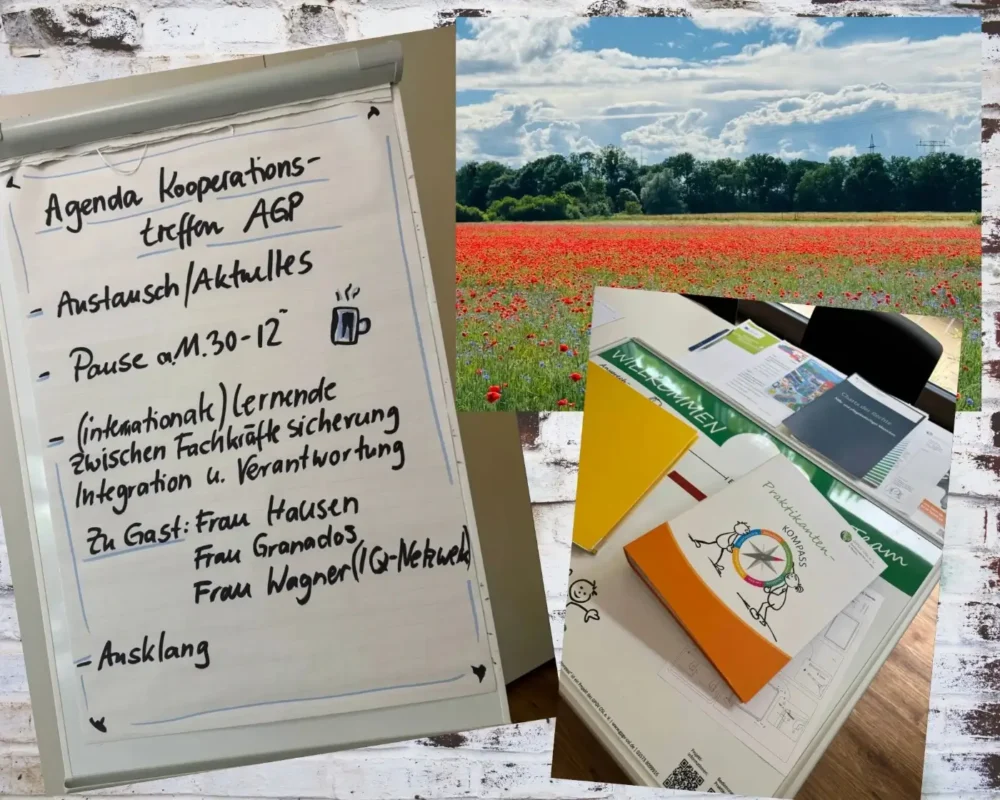 Agenda Kooperations-
treffen AGP
- Austausch/Aktuelles
- Pause a 11.30-12
- (internationale) Lernende
zwischen Fachkräfte sicherung
Integration u. Verantwortung
Zu Gast: Frau Hausen
Frau Granados
Frau Wagner (IQ-Netzwerk)
- Ausklang
WILLKOMMEN
Praktikanten-
KOMPASS
Team